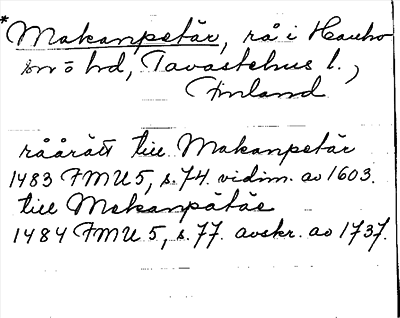 *Makanpetär, rå i Hauho
sn o hd, Tavastehus l.,
Finland
råårätt till Makanpetär
1483 FMU 5, s. 74. vidim. av 1603.
till Mekanpätäs
1484 FMU 5, s. 77. avskr. av 1737.